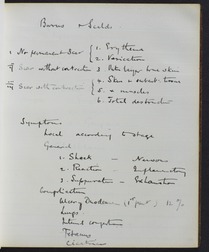 Burns & Scalds
I No permanent Scar { 1. Erythema
2. Vesication
II Scar without contraction { 3. Part. layer true skin
4. Skin & subcut. tissue
III Scar with contraction { 5. " & muscles
6. Total destruction
Symptoms
Local according to stage
General
1. Shock — Nervous
2. Reaction — Inflammatory
3. Suppuration — Exhaustion
Complications
Ulcer of Duodenum (1st part) 12 %
Lungs
Internal congestions
Tetanus
Cicatrices